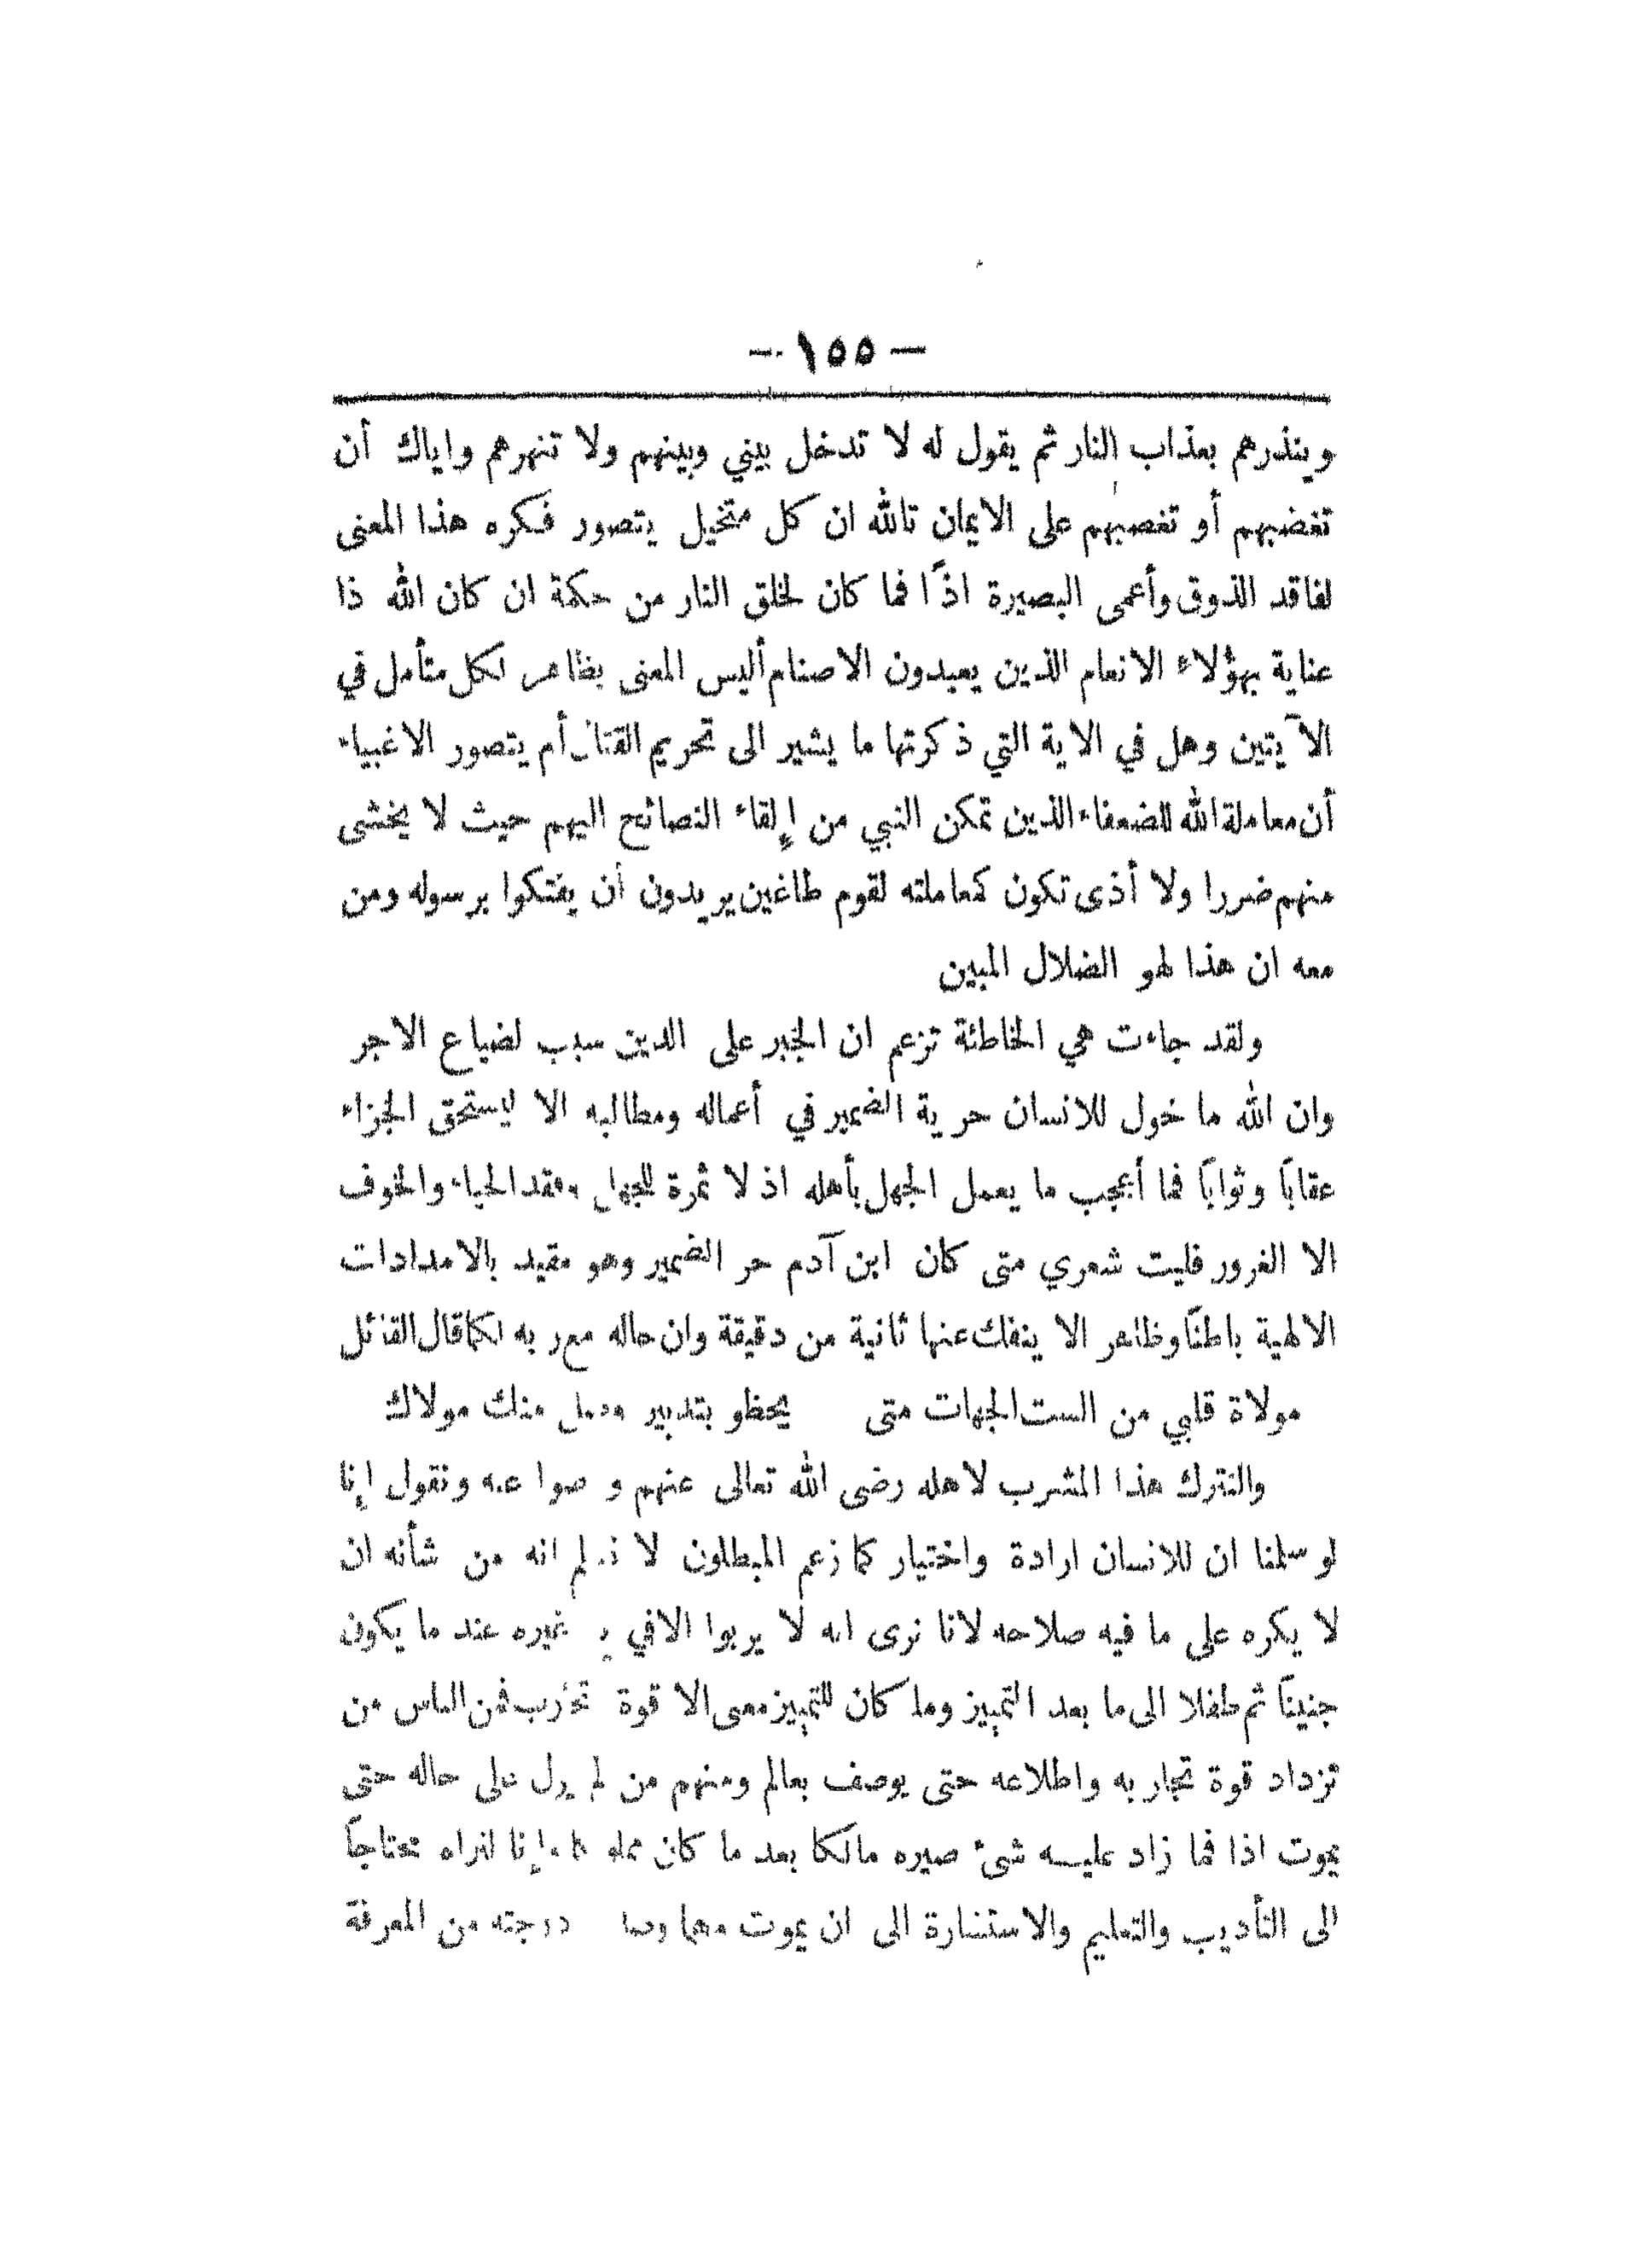 — ١٥٥ —
وينذرهم بعذاب النار ثم يقول له لا تدخل بيني وبينهم ولا تنهرهم واياك أن
تغضبهم أو تغصبهم على الايمان تالله ان كل متخيل يتصور فكره هذا المعنى
لفاقد الذوق وأعمى البصيرة اذًا فما كان لخلق النار من حكمة ان كان الله ذا
عناية بهؤلاء الانعام الذين يعبدون الاصنام أليس المعنى بظاهر لكل متأمل في
الآيتين وهل في الاية التي ذكرتها ما يشير الى تحريم القتال أم يتصور الاغبياء
أن معاملة الله للضعفاء الذين تمكن النبي من إلقاء النصائح اليهم حيث لا يخشى
منهم ضررا ولا أذى تكون كمعاملته لقوم طاغين يريدون أن يفتكوا برسوله ومن
معه ان هذا لهو الضلال المبين
ولقد جاءت هي الخاطئة تزعم ان الجبر على الدين سبب لضياع الاجر
وان الله ما خول للانسان حرية الضمير في أعماله ومطالبه الا ليستحق الجزاء
عقابًا وثوابًا فما أعجب ما يعمل الجهل بأهله اذ لا ثمرة للجهل وفقد الحياء والخوف
الا الغرور فليت شعري متى كان ابن آدم حر الضمير وهو مقيد بالامدادات
الالهية باطنًا وظاهر الا ينفك عنها ثانية من دقيقة وان حاله مع ربه لكما قال القائل
مولاة قلبي من الست الجهات متى يحظو بتدبير منك مولاك
ولنترك هذا المشرب لاهله رضى الله تعالى عنهم و ونقول إنا
لو سلمنا ان للانسان ارادة واختيار كما زعم المبطلون لا انه من شأنه ان
لا يكره على ما فيه صلاحه لانا نرى انه لا يربوا الا في غيره عند ما يكون
جنينًا ثم طفلا الى ما بعد التمييز وما كان للتمييز معنى الا قوة فمن الناس من
تزداد قوة تجاربه واطلاعه حتى يوصف بعالم ومنهم من لم يزل على حاله حتى
يموت اذا فما زاد عليه شئ صيره مالكا بعد ما كان إنا لنراه محتاجاً
الى التأديب والتعليم والاستنارة الى ان يموت مهما درجته من المعرفة